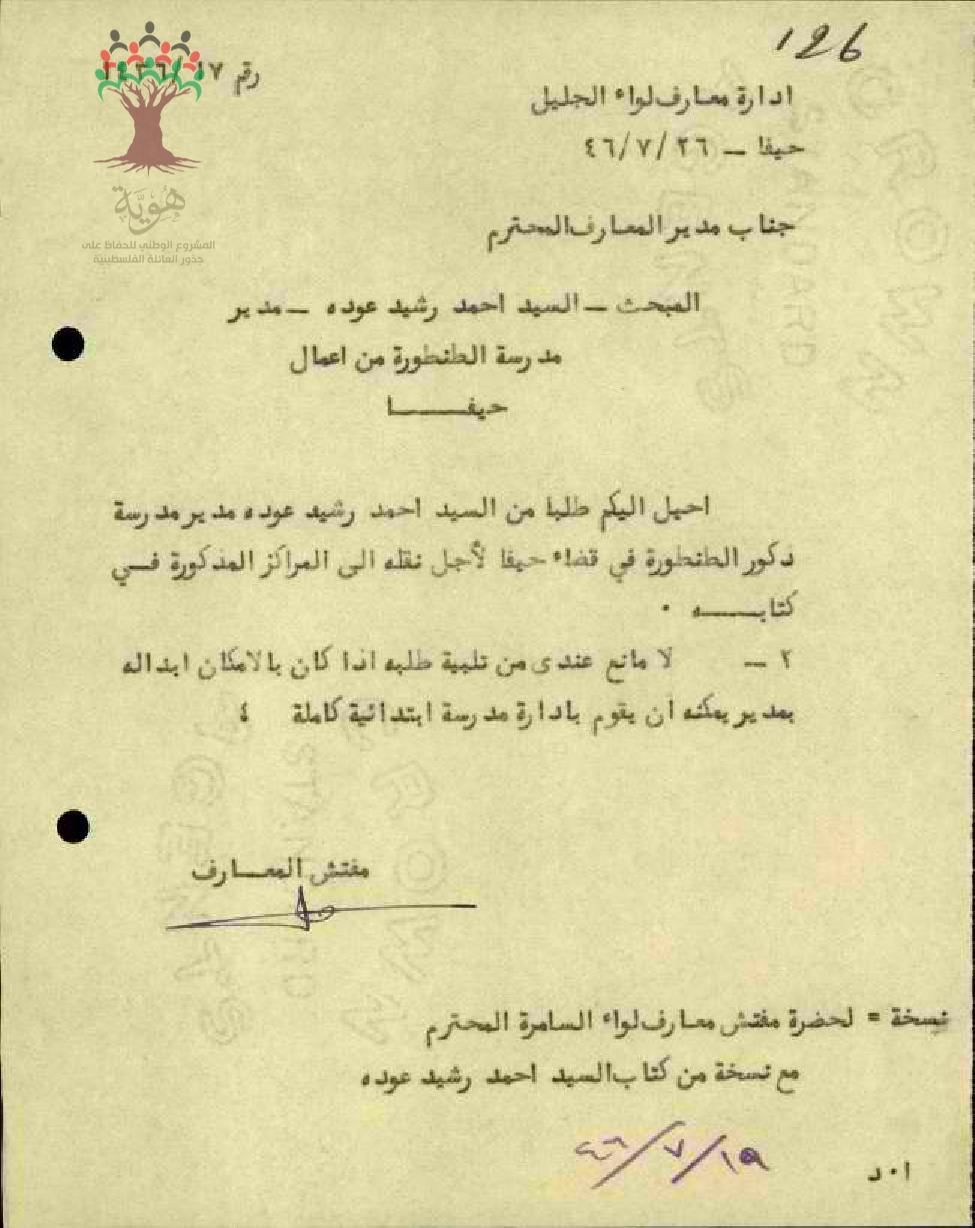 126
رقم ١٧
ادارة معارف لواء الجليل
حيفا – ٤٦/٧/٢٦
هُوِيَّة
المشروع الوطني للحفاظ على
جذور العائلة الفلسطينية
جناب مدير المعارف المحترم
المبحث – السيد احمد رشيد عوده – مدير
مدرسة الطنطورة من اعمال
حيفــــــا
احيل اليكم طلبا من السيد احمد رشيد عوده مدير مدرسة
دكور الطنطورة في قضاء حيفا لأجل نقله الى المراكز المذكورة فــي
كتابـــــه ٠
٢ – لا مانع عندى من تلبية طلبه اذا كان بالامكان ابداله
بمدير يمكنه ان يقوم بادارة مدرسة ابتدائية كاملة ٤
مفتش المعــارف
نسخة = لحضرة مفتش معارف لواء السامرة المحترم
مع نسخة من كتاب السيد احمد رشيد عوده
٤٦/٧/١٩
ا٠د
ROMAN
STANDARD
ROMAN
STANDARD